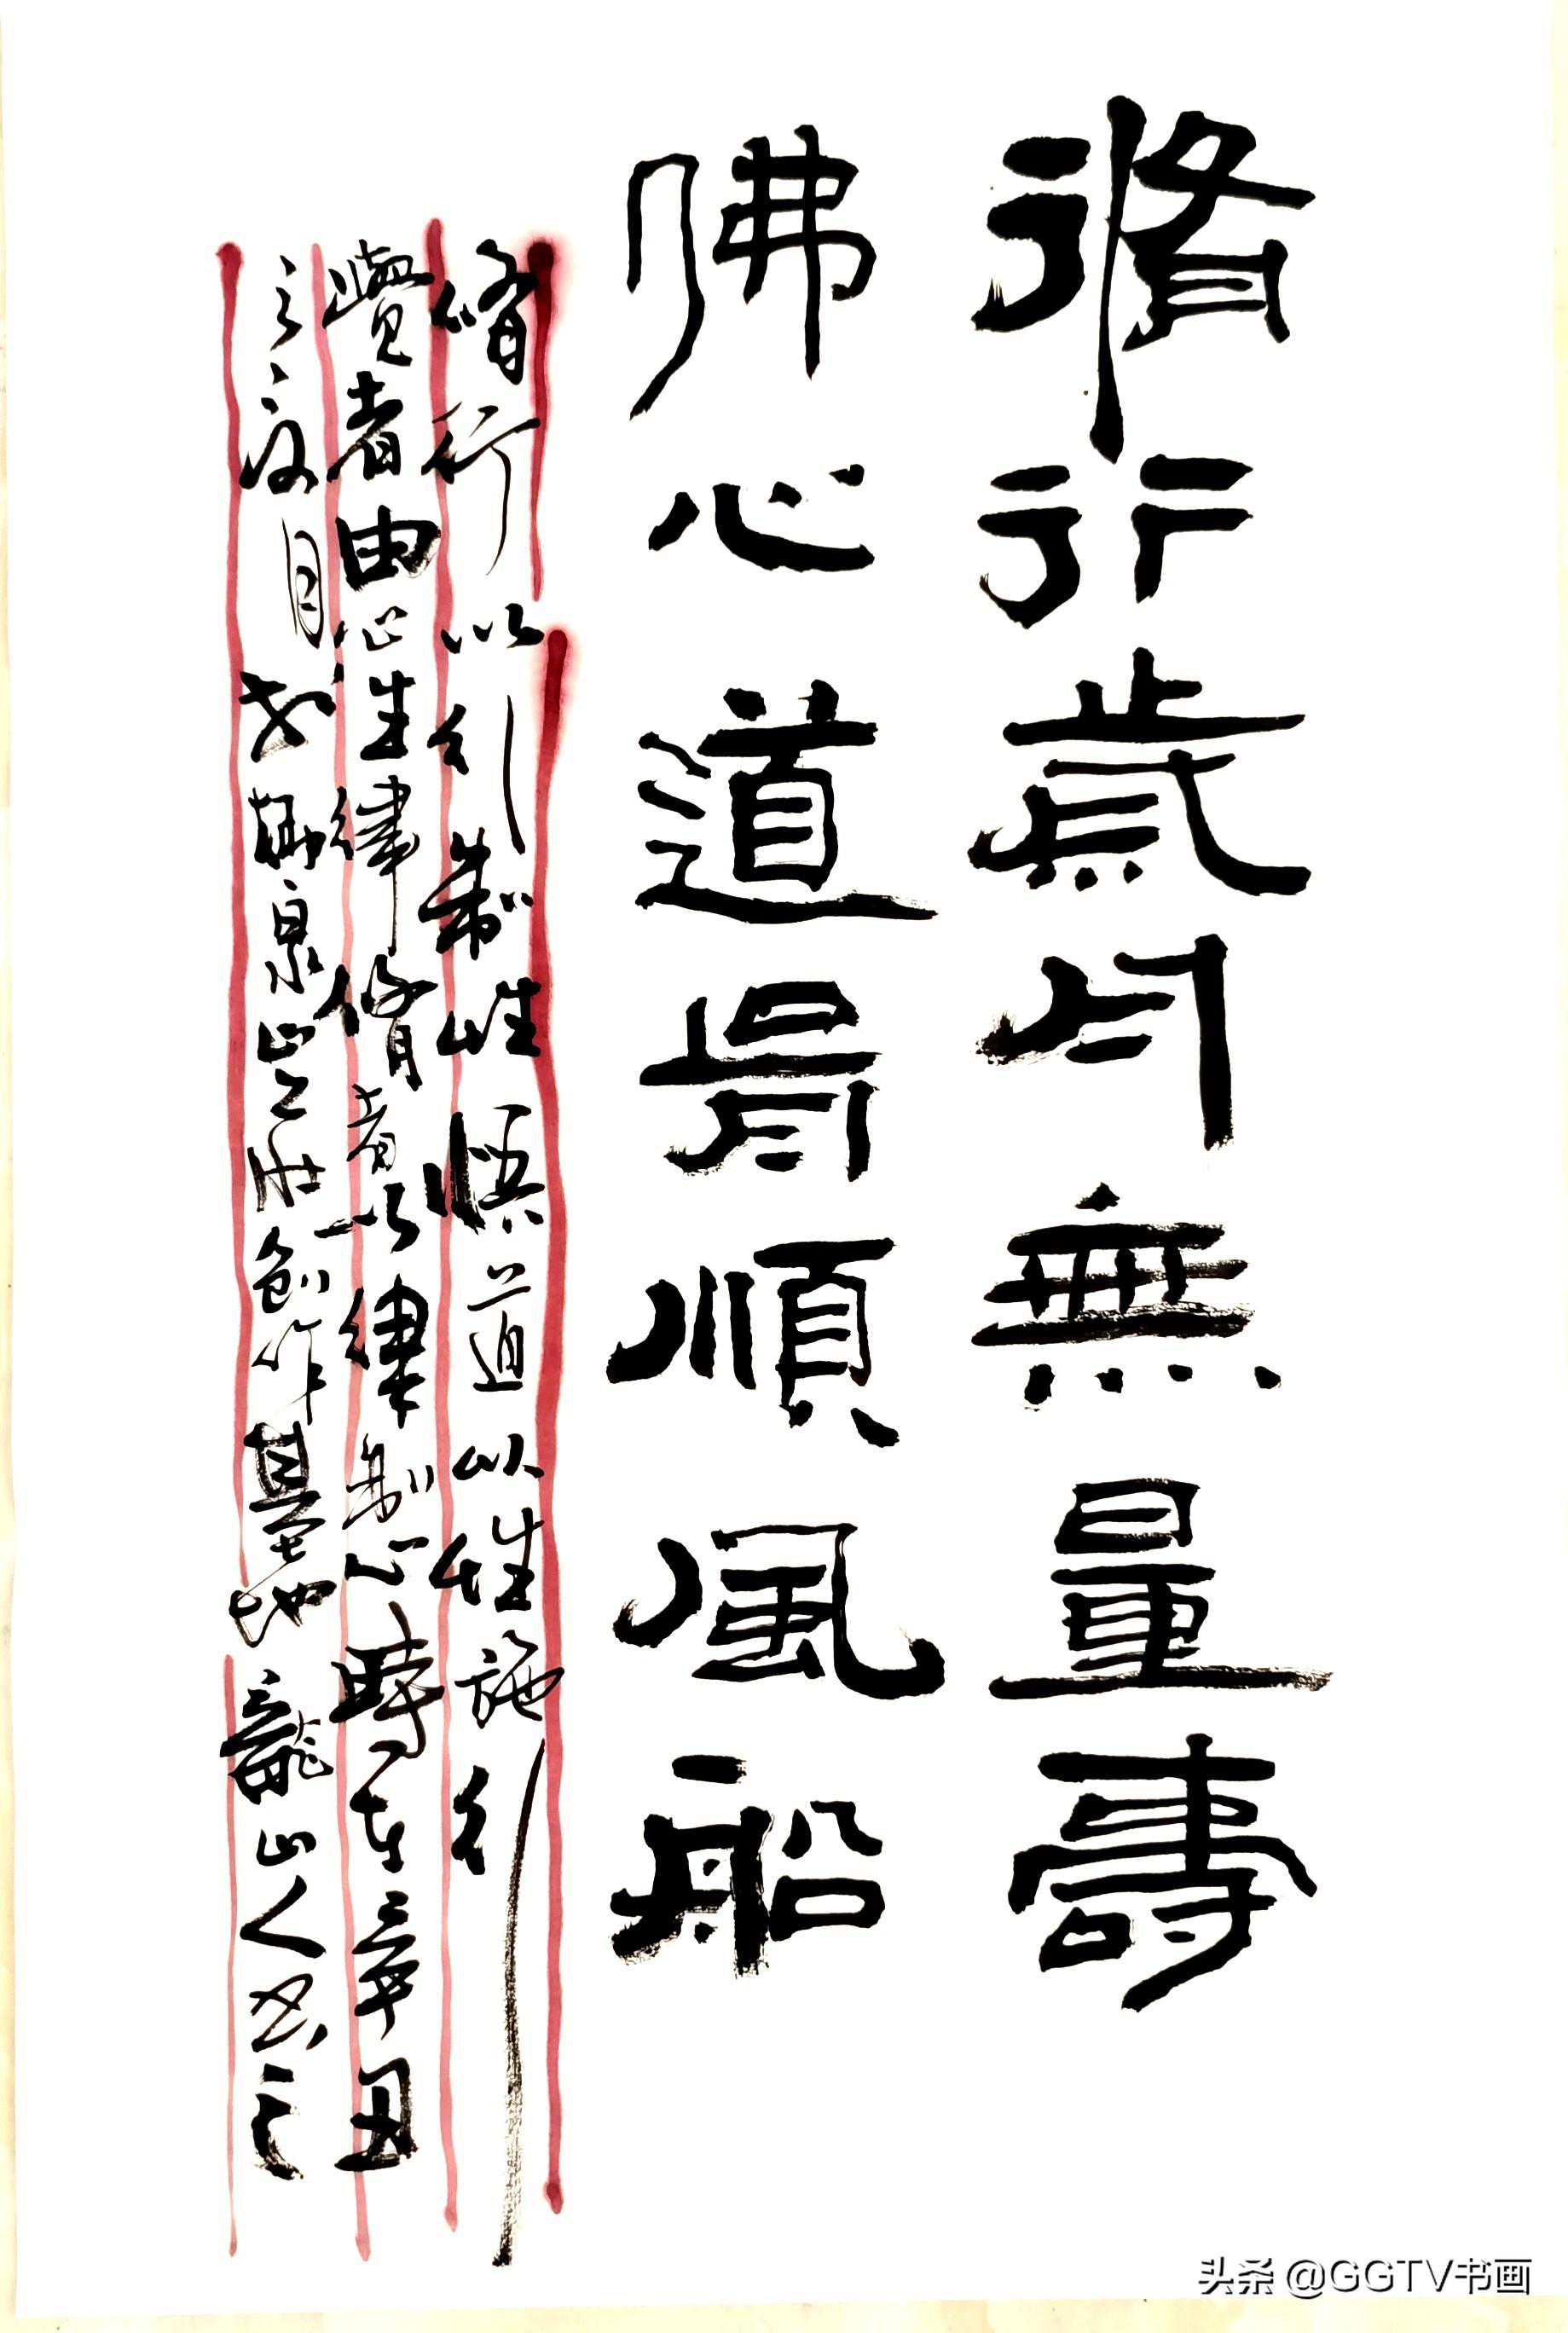 脩行歲月無量壽
佛心道骨順風船
脩行以行制性悟道以性施行
覺者由心生律脩者以律制心時在辛丑
之夏月於柳泉山之莊創作基地龍山人書之
头条 @GGTV书画